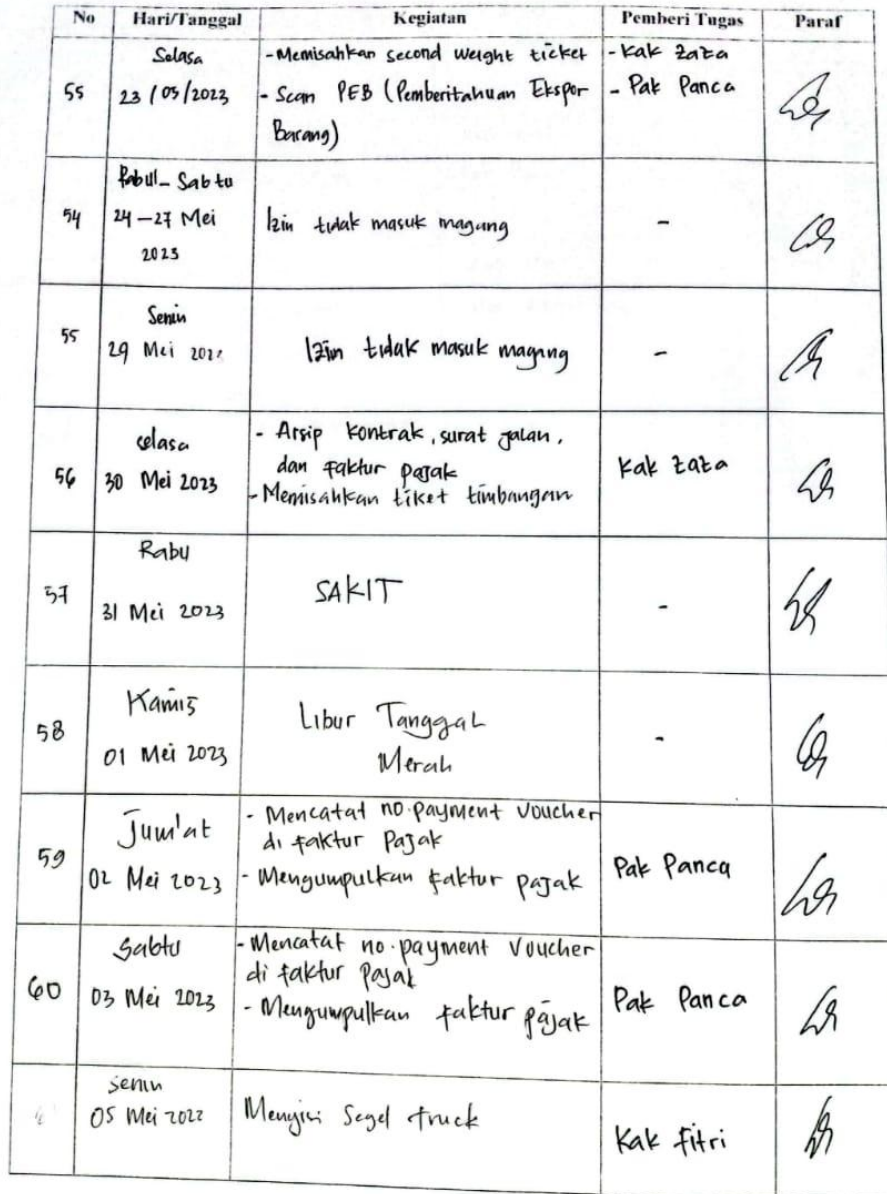 No Hari/Tanggal Kegiatan Pemberi Tugas Paraf
55 Selasa 23/05/2023
-Memisahkan second weight ticket
- Scan PEB (Pemberitahuan Ekspor
Barang)
- Kak zaza
- Pak Panca
54 Rabu - Sabtu
24-27 Mei
2023
Izin tidak masuk magang
-
55 Senin
29 Mei
Izin tidak masuk magang
-
56 selasa
30 Mei 2023
- Arsip kontrak, surat jalan,
dan faktur pajak
- Memisahkan tiket timbangan
Kak zaza
57 Rabu
31 Mei 2023
SAKIT
-
58 Kamis
01 Mei 2023
Libur Tanggal
Merah
-
59 Jum'at
02 Mei 2023
- Mencatat no.payment voucher
di faktur Pajak
- Mengumpulkan faktur pajak
Pak Panca
60 Sabtu
03 Mei 2023
- Mencatat no.payment voucher
di faktur Pajak
- Mengumpulkan faktur pajak
Pak Panca
senin
05 Mei
Mengisi Segel truck
Kak fitri